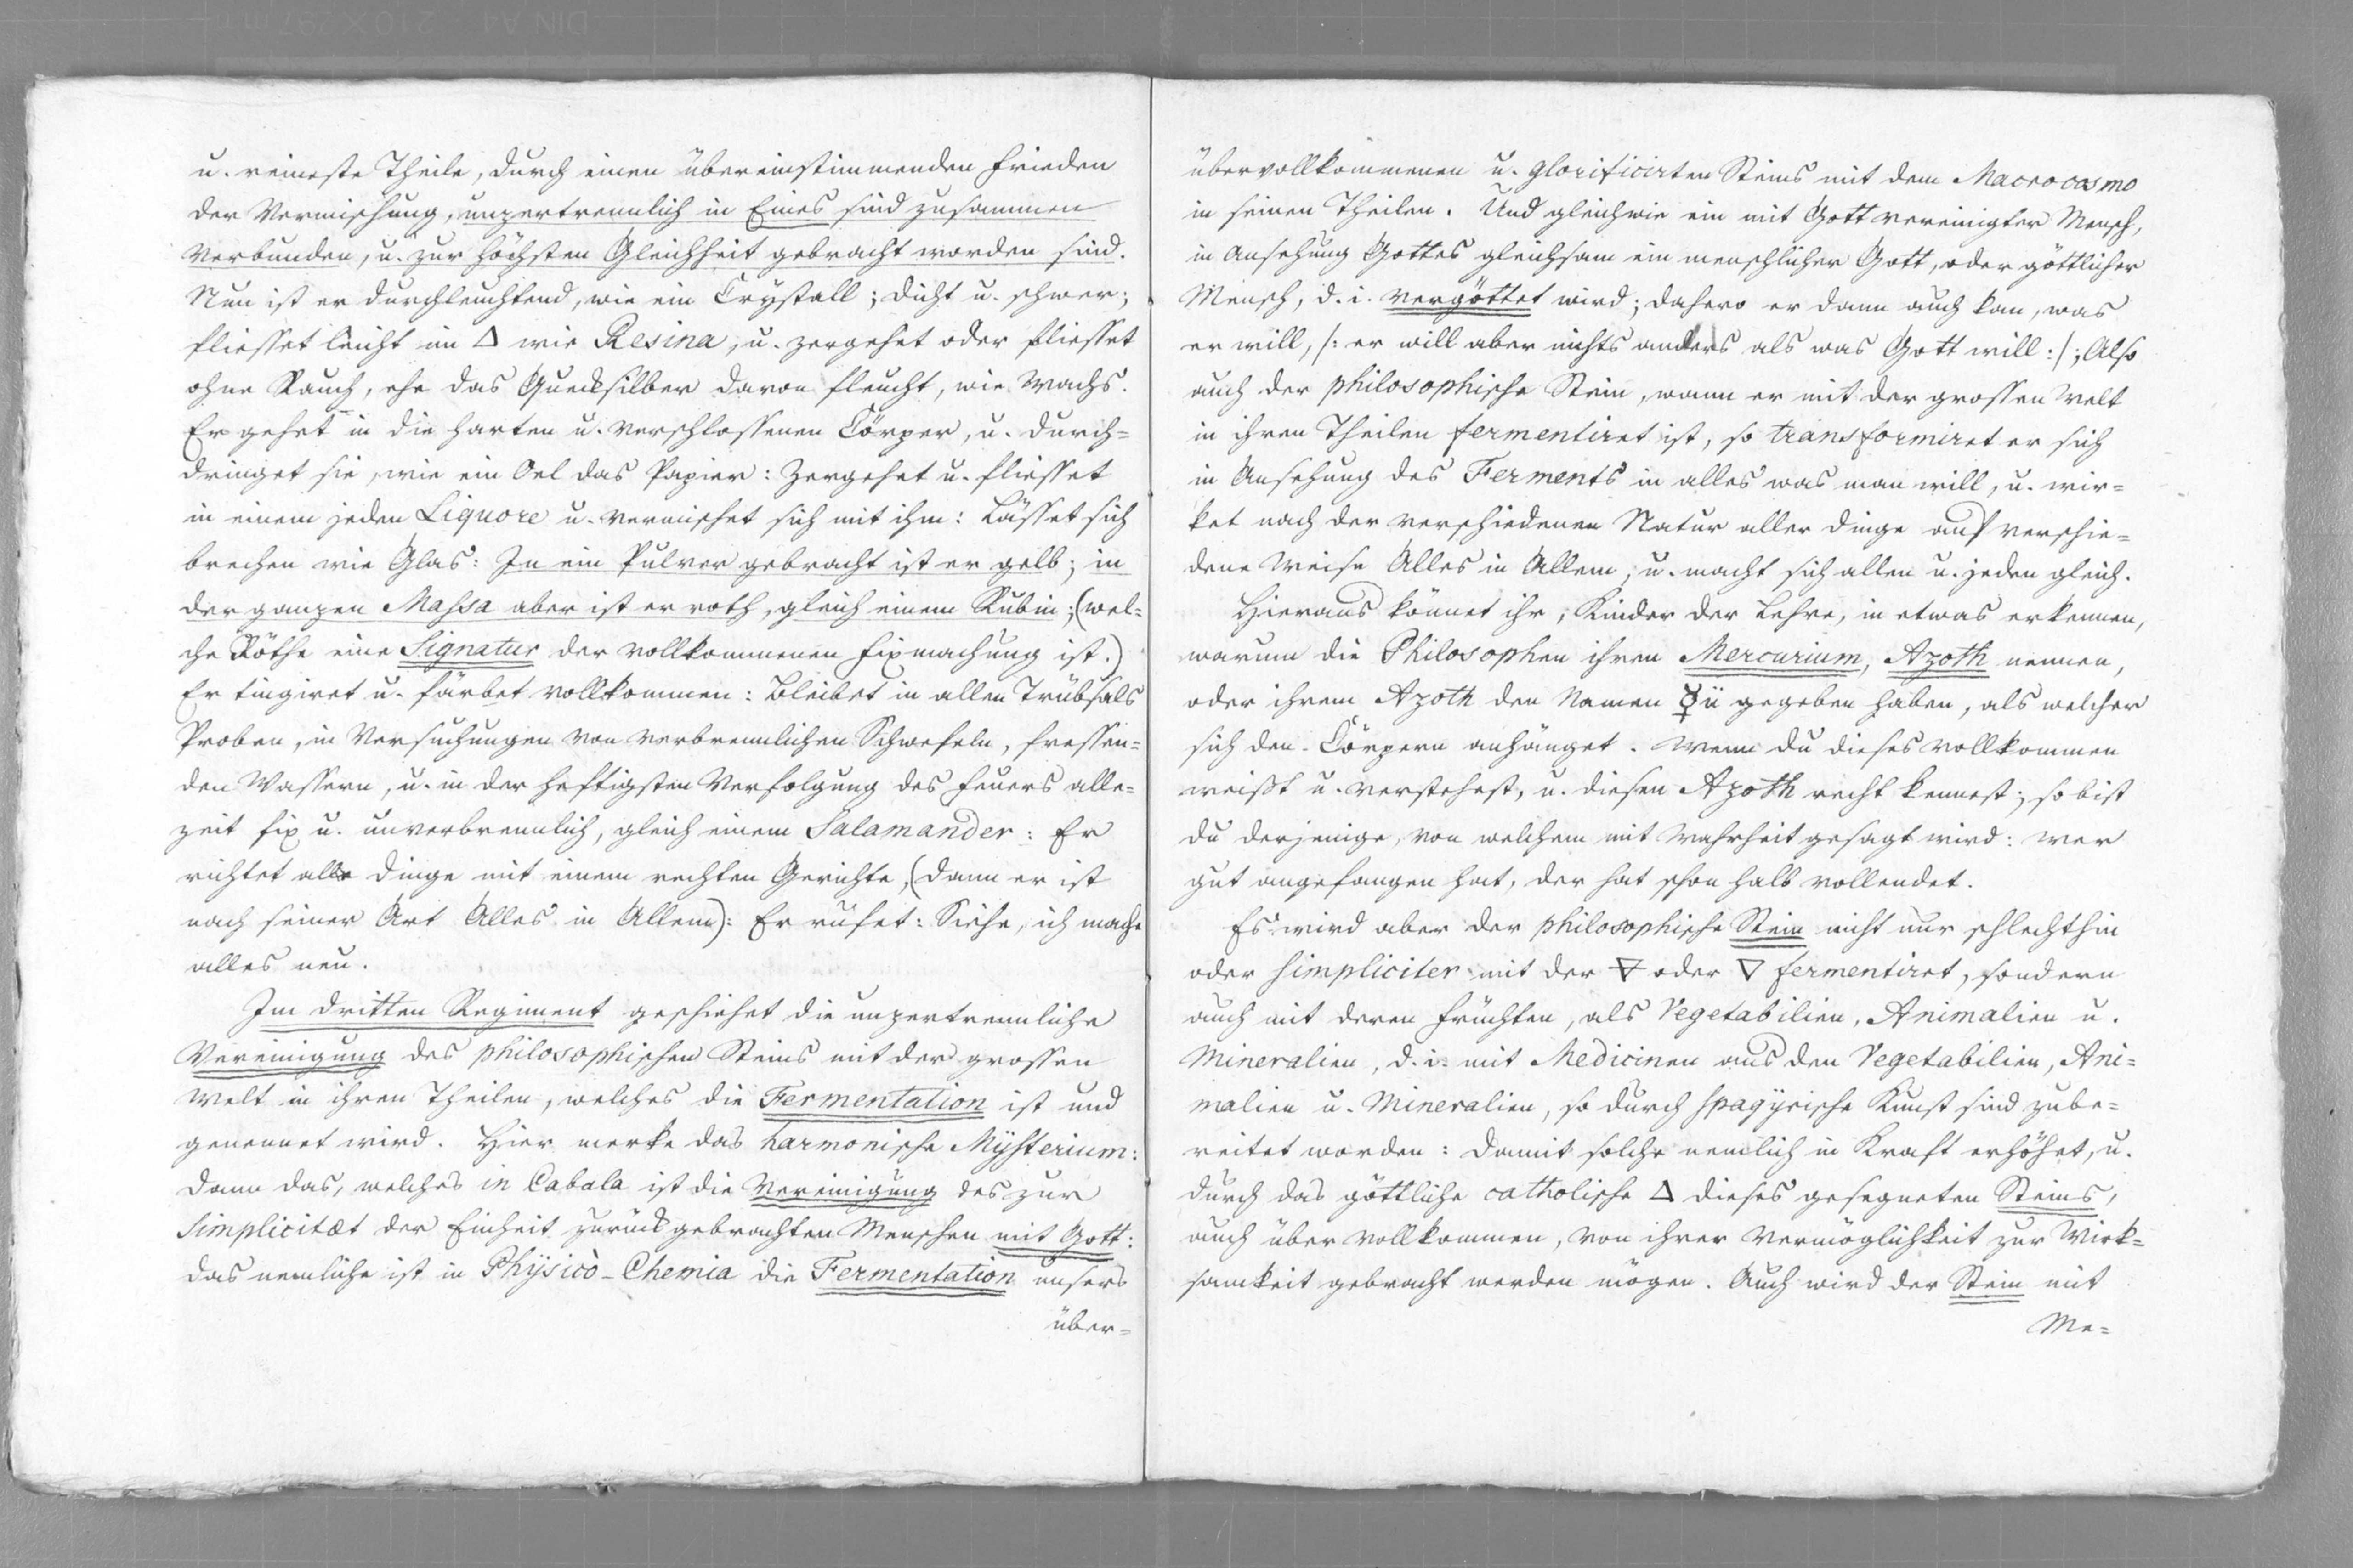 u. reineste Theile, durch einen übereinstimmenden Frieden
der Vermischung, unzertrennlich in Eines sind zusammen
verbunden, u. zur höchsten Gleichheit gebracht worden sind.
Nun ist er durchleuchtend, wie ein Crystall; dicht u. schwer;
fliesset leicht im 🜂 wie Resina, u. zergehet oder fliesset
ohne Rauch, ehe das Quecksilber davon fleucht, wie Wachs.
Er gehet in die harten u. verschlossenen Cörper, u. durch=
dringet sie, wie ein Oel das Papier: Zergehet u. fliesset
in einem jeden Liquore u. vermischet sich mit ihm: Lässet sich
brechen wie Glas: In ein Pulver gebracht ist er gelb; in
der ganzen Massa aber ist er roth, gleich einem Rubin; (wel=
che Röthe eine Signatur der vollkommenen Fixmachung ist.)
Er tingiret u. färbet vollkommen: Bleibet in allen Trübsals
Proben, in Versuchungen von verbrennlichen Schwefeln, fressen=
den Wassern, u. in der heftigsten Verfolgung des Feuers alle=
zeit fix u. unverbrennlich, gleich einem Salamander: Er
richtet alle Dinge mit einem rechten Gerichte, (dann er ist
nach seiner Art Alles in Allem): Er rufet: Siehe, ich mache
alles neu.
Im dritten Regiment geschiehet die unzertrennliche
Vereinigung des philosophischen Steins mit der grossen
Welt in ihren Theilen, welches die Fermentation ist und
genennet wird. Hier merke das harmonische Mysterium:
Dann das, welches in Cabala ist die Vereinigung des zur
Simplicitæt der Einheit zurückgebrachten Menschen mit Gott:
das nemliche ist in Physicò-Chemia die Fermentation unsers
über=
übervollkommenen u. glorificirten Steins mit dem Macrocosmo
in seinen Theilen. Und gleichwie ein mit Gott vereinigter Mensch,
in Ansehung Gottes gleichsam ein menschlicher Gott, oder göttlicher
Mensch, d. i. vergöttet wird; dahero er dann auch kan, was
er will, /: er will aber nichts anders als was Gott will :/; Also
auch der philosophische Stein, wann er mit der grossen Welt
in ihren Theilen fermentiret ist, so transformiret er sich
in Ansehung des Ferments in alles was man will, u. wir=
ket nach der verschiedenen Natur aller Dinge auf verschie=
dene Weise Alles in Allem, u. macht sich allen u. jeden gleich.
Hieraus könnet ihr, Kinder der Lehre, in etwas erkennen,
warum die Philosophen ihren Mercurium, Azoth nennen,
oder ihrem Azoth den Namen ☿ii gegeben haben, als welcher
sich den Cörpern anhänget. Wenn du dieses vollkommen
weißt u. verstehest, u. diesen Azoth recht kennest; so bist
du derjenige, von welchem mit Wahrheit gesagt wird: Wer
gut angefangen hat, der hat schon halb vollendet.
Es wird aber der philosophische Stein nicht nur schlechthin
oder simpliciter mit der 🜃 oder 🜄 fermentiret, sondern
auch mit deren Früchten, als Vegetabilien, Animalien u.
Mineralien, d. i. mit Medicinen aus den Vegetabilien, Ani=
malien u. Mineralien, so durch spagyrische Kunst sind zube=
reitet worden: Damit solche nemlich in Kraft erhöhet, u.
durch das göttliche catholische 🜂 dieses gesegneten Steins,
auch über vollkommen, von ihrer Vermöglichkeit zur Wirk=
samkeit gebracht werden mögen. Auch wird der Stein mit
Me=